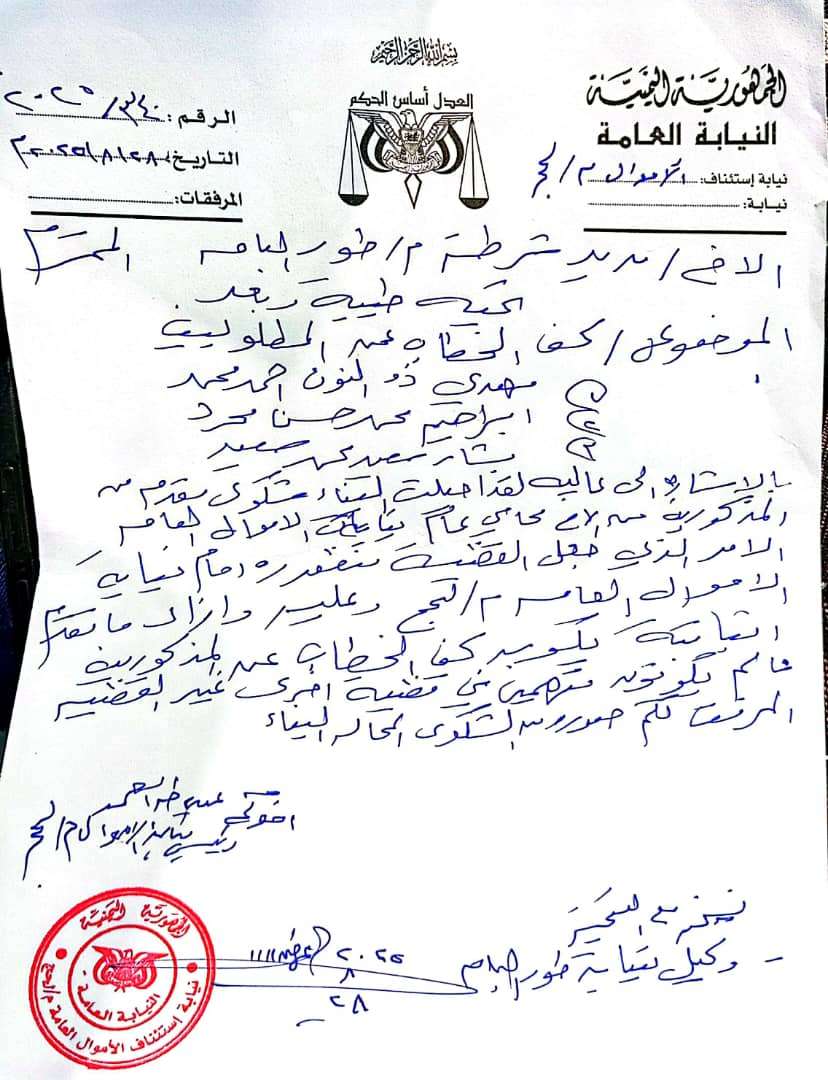 بسم الله الرحمن الرحيم
الجمهورية اليمنية
النيابة العامة
نيابة إستئناف: الأموال م/لحج
نيابة:
العدل أساس الحكم
الرقم: ٣٤٠/ ٢٠٢٥
التاريخ: ٢٨/٨/٢٠٢٥م
المرفقات:
الاخ/ مدير شرطة م/ طور الباحه المحترم
تحيه طيبه وبعد
الموضوع/ كف الخطاب عن المطلوبين
١ مهدي ذو النون احمد محمد
٢ ابراهيم محمد حسن مجرد
٣ بشار سعيد محمد سعيد
بالإشاره الى عاليه لقد احيلت الينا شكوى مقدم من
المذكورين من الاخ محامي عام نيابات الاموال العامه
الامر الذي جعل القضية منظوره امام نيابة
الاموال العامه م/لحج وعليه وازاء ما تقدم
النيابة كف الخطاب عن المذكورين
مالم يكونون متهمين في قضية اخرى غير القضيه
المرفق لكم صوره من الشكوى المحاله الينا
رئيس نيابة الاموال م/لحج
نسخه مع التحيه
- وكيل نيابة طور الباحه
٢٠٢٥
٨
٢٨
الجمهورية اليمنية
النيابة العامة
نيابة استئناف الأموال العامة م/لحج